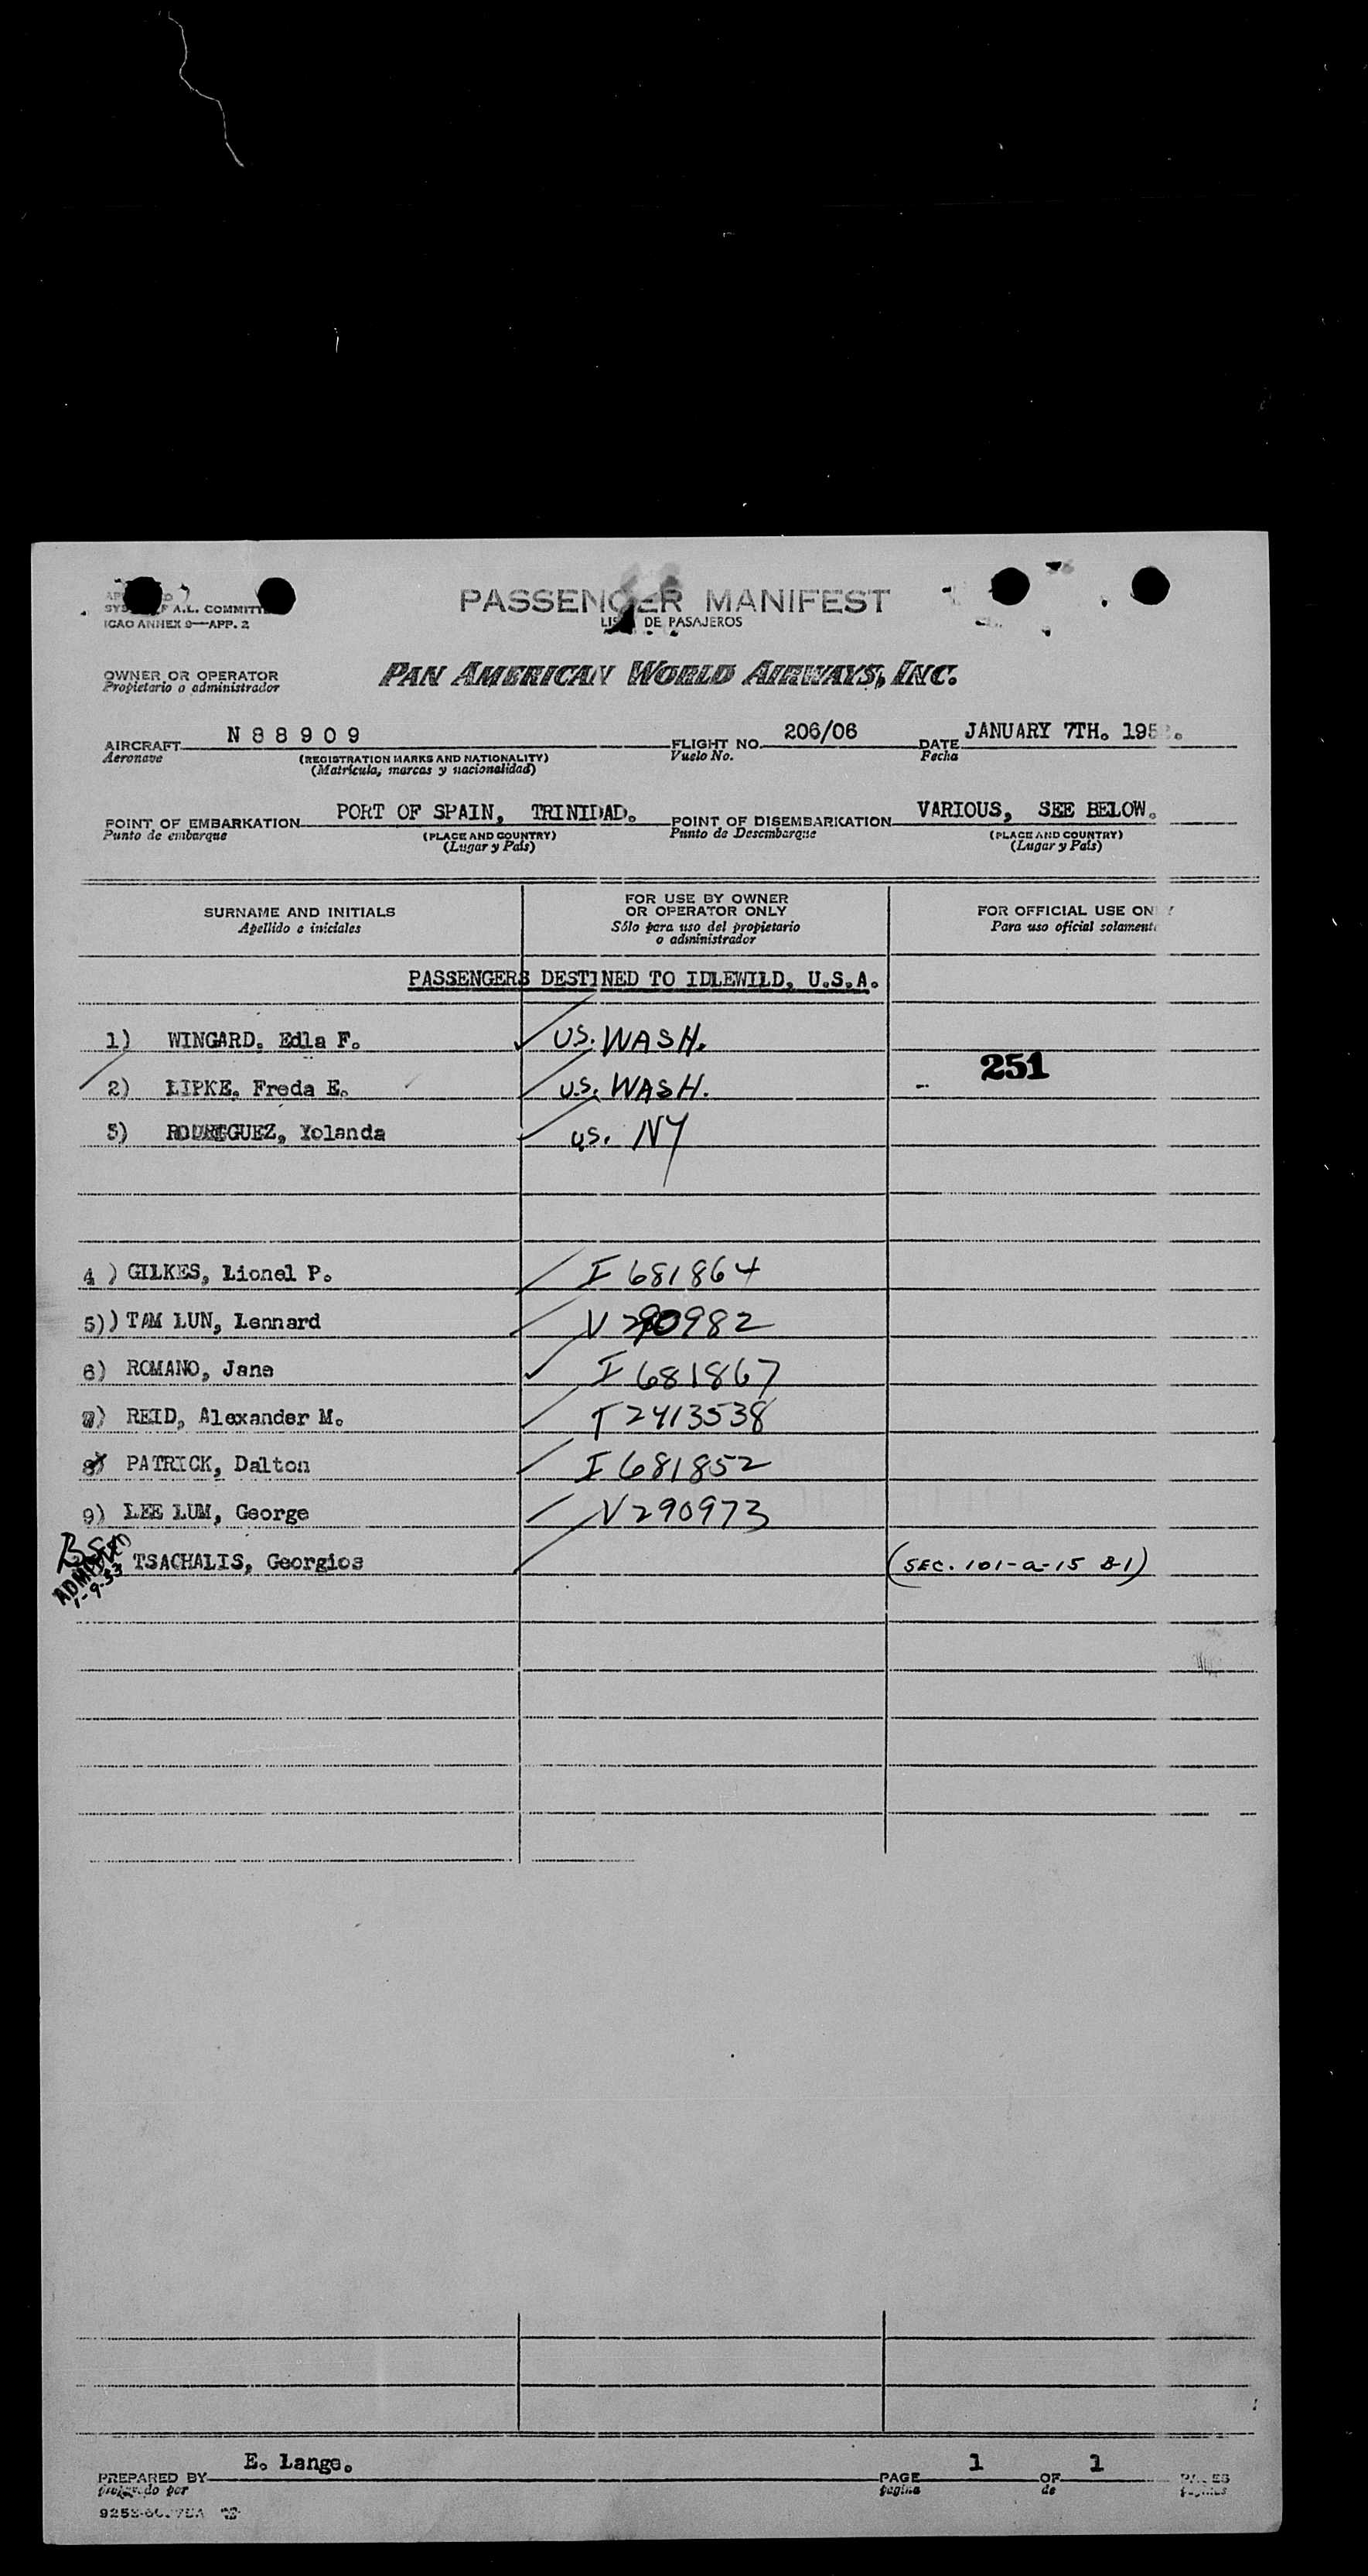 PASSENGER MANIFEST
SYS A.L. COMMITT
LIS DE PASAJEROS
ICAO ANNEX 9—APP. 2
OWNER OR OPERATOR PAN AMERICAN WORLD AIRWAYS, INC.
Propietario o administrador
AIRCRAFT N 8 8 9 0 9 FLIGHT NO. 206/06 DATE JANUARY 7TH. 195
Aeronave (REGISTRATION MARKS AND NATIONALITY) Vuelo No. Fecha
(Matrícula, marcas y nacionalidad)
POINT OF EMBARKATION PORT OF SPAIN, TRINIDAD. POINT OF DISEMBARKATION VARIOUS, SEE BELOW.
Punto de embarque (PLACE AND COUNTRY) Punto de Desembarque (PLACE AND COUNTRY)
(Lugar y País) (Lugar y País)
SURNAME AND INITIALS FOR USE BY OWNER OR OPERATOR ONLY FOR OFFICIAL USE ON
Apellido e iniciales Sólo para uso del propietario o administrador Para uso oficial solament
PASSENGERS DESTINED TO IDLEWILD, U.S.A.
1) WINGARD. Edla F. US. WASH.
251
2) LIPKE. Freda E. U.S. WASH.
3) RODREGUEZ, Yolanda US. NY
4 ) GILKES, Lionel P. I 681864
5)) TAM LUN, Lennard V 290982
6) ROMANO, Jane I 681867
7) REID, Alexander M. T 2413538
8) PATRICK, Dalton I 681852
9) LEE LUM, George V 290973
TSACHALIS, Georgios (SEC. 101-a-15 B-1)
ADMITTED
1-9-53
PREPARED BY E. Lange. PAGE 1 OF 1 PAGES
preparado por pagina de